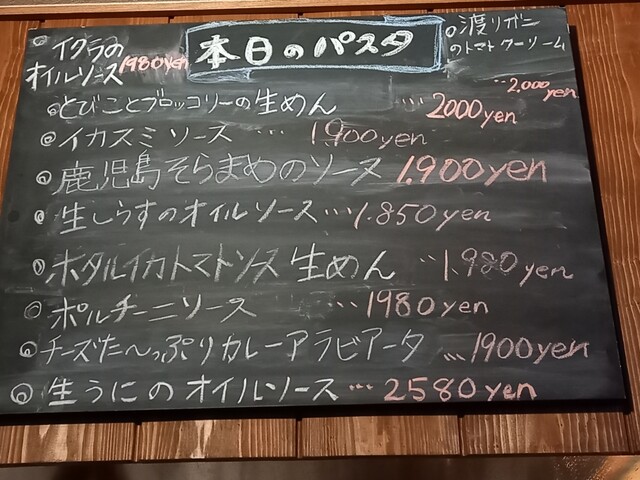 本日のパスタ
イクラの
オイルソース 1980yen
渡りガニ
のトマトクリーム
…2,000yen
とびことブロッコリーの生めん …2000yen
イカスミソース … 1900yen
鹿児島そらまめのソース 1.900yen
生しらすのオイルソース…1.850yen
ホタルイカトマトソース生めん …1.980yen
ポルチーニソース …1980yen
チーズた〜っぷりカレーアラビアータ …1900yen
生うにのオイルソース…2580yen